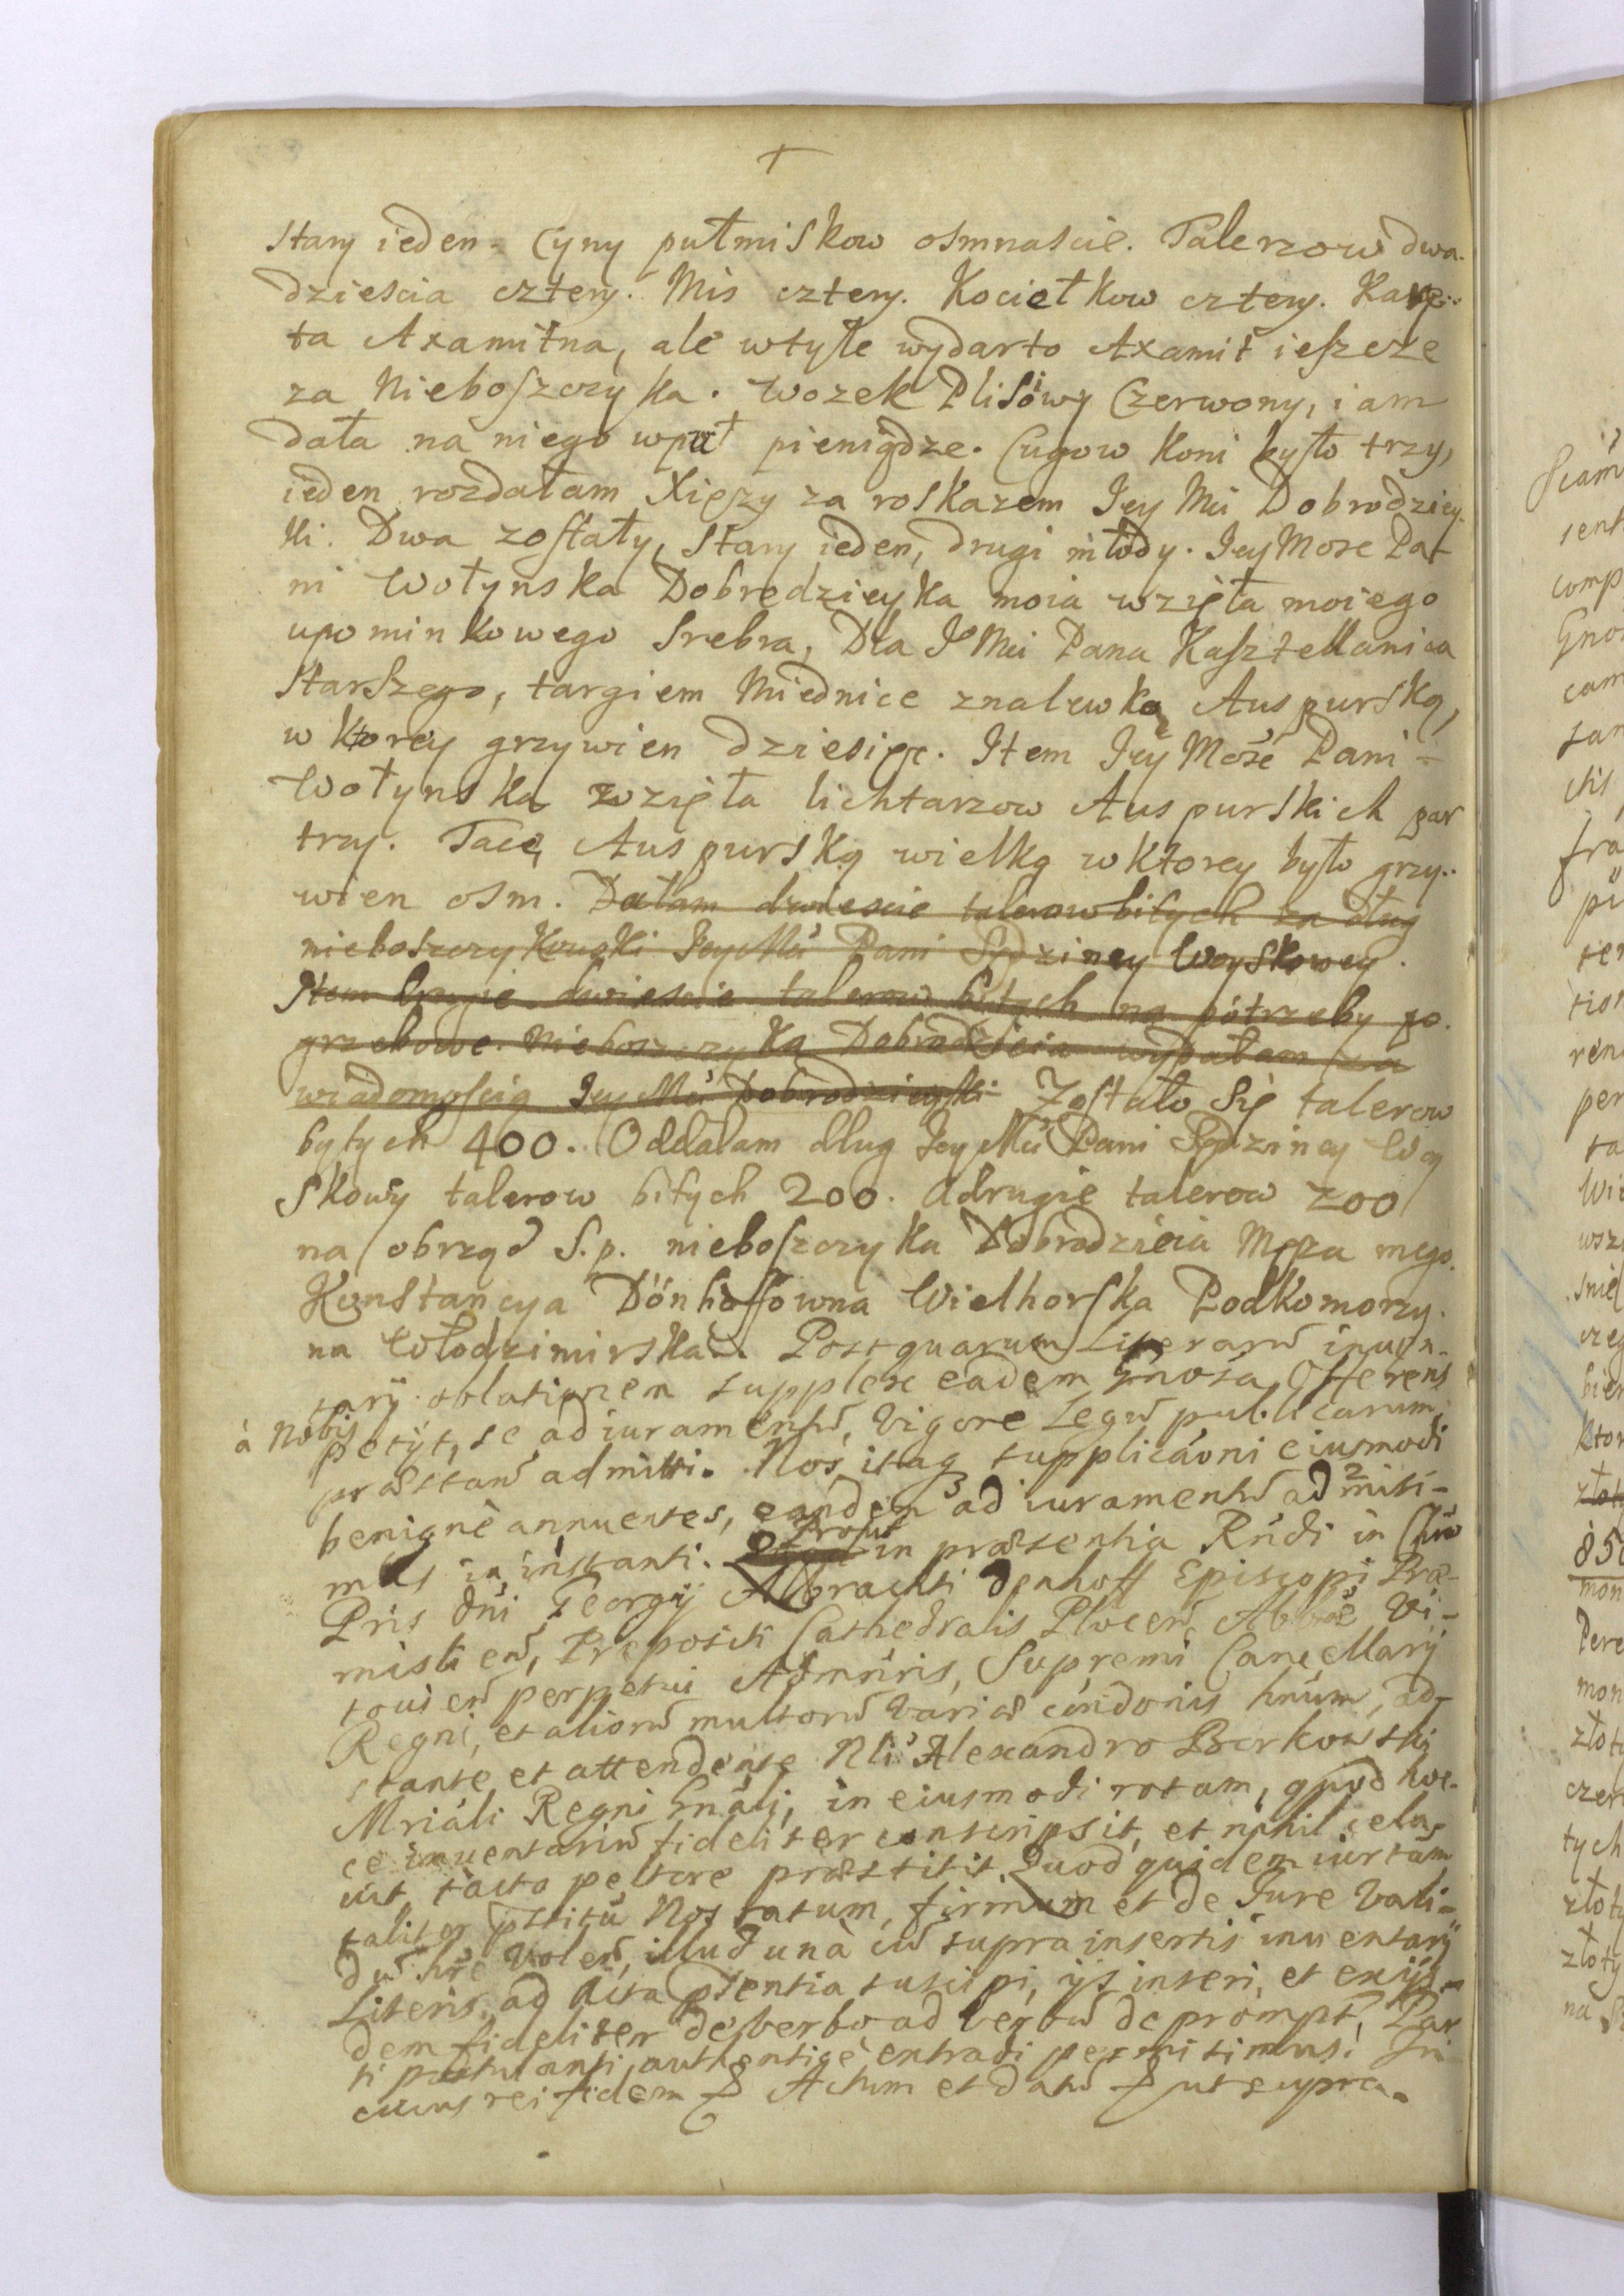 +
stary ieden. Cyny pułmiskow osmnascie. Talerzow dwa-
dziescia cztery. Mis cztery. Kociełkow cztery. Kare-
ta Axamitna, ale wtyle wydarto Axamit ieszcze
za Nieboszczyka. Wozek Plisowy Czerwony, i am
dała na niego wpuł pieniądze. Cugow koni było trzy,
ieden rozdałam Xięzy za roskazem Iey Mci Dobrodziey-
ki. Dwa zostały, stary ieden, drugi młody. Iey Mosc Pa-
ni Wołynska Dobrodzieyka moia wzięła moiego
upominkowego Srebra, Dla I Mci Pana Kasztellanica
Starszego, targiem Miednice znalewką Auspurską,
w ktorey grzywien dziesięc. Item Iey Mosć Pani
Wołynska wzięła lichtarzow Auspurskich par
trzy. Tacę Auspurską wielką wktorey było grzy-
wien osm. Dałam dwiescie talerow bitych za dług
nieboszczykowski Iey Mci Pani Sędziney Woyskowey.
Item drugie dwiescie talerow bitych na potrzeby po-
grzebowe Nieboszczyka Dobrodzieia wydałam za
wiadomoscią Iey Mci Dobrodzieyki Zostało się talerow
bytych 400. Oddałam dług Iey Mci Pani Sędziney Woy
skowy talerow bitych 200. a drugie talerow 200
na obrząd S.p. nieboszczyka Dobrodzieia Męża mego.
Konstancya Dönhoffowna Wielhorska Podkomorzy-
na Włodzimirska. Post quarum Literarũ inuen-
tarÿ oblationem supplex eadem Gnosa Offerens
à Nobis petÿt, se ad iuramentũ, vigore Legũ publicarum
præstanď admitti. Nos itaq supplicaõni eiusmodi
benignè annuentes, eandem 3 ad iuramentũ ad 2 misi-
mus in instanti. Prout in præsentia Rńdi in Chŕo
Pris Dńi Georgÿ Albrachti Denhoff Episcopi Præ-
mislień, Præpositi Cathedralis Ploceń, Abbiæ Vi-
touień perpetui Admńris, Supremi Cancellarÿ
Regni, et aliorũ multorũ variæ cońdonis hńum, ad-
stante et attendente Nli Alexandro Borkowski
Mriáli Regni Gnáli, in eiusmodi rotam, quod hoc-
ce inuentariũ fideliter conscripsit, et nihil cela-
uit, tacto pectore præstitit. Quod quidem iurtam
taliter pstitũ Nos ratum, firmum et de Iure Vali-
dũ hre voleń, illud unà cũ supra insertis inuentarÿ
Literis, ad Acta psentia suscipi, ijs inseri, et exijs-
dem fideliter de verbo ad verbũ deprompt. Par
ti postulanti, authenticè extradi permitimus. In
cuius rei fidem Actum et datũ ut supra.